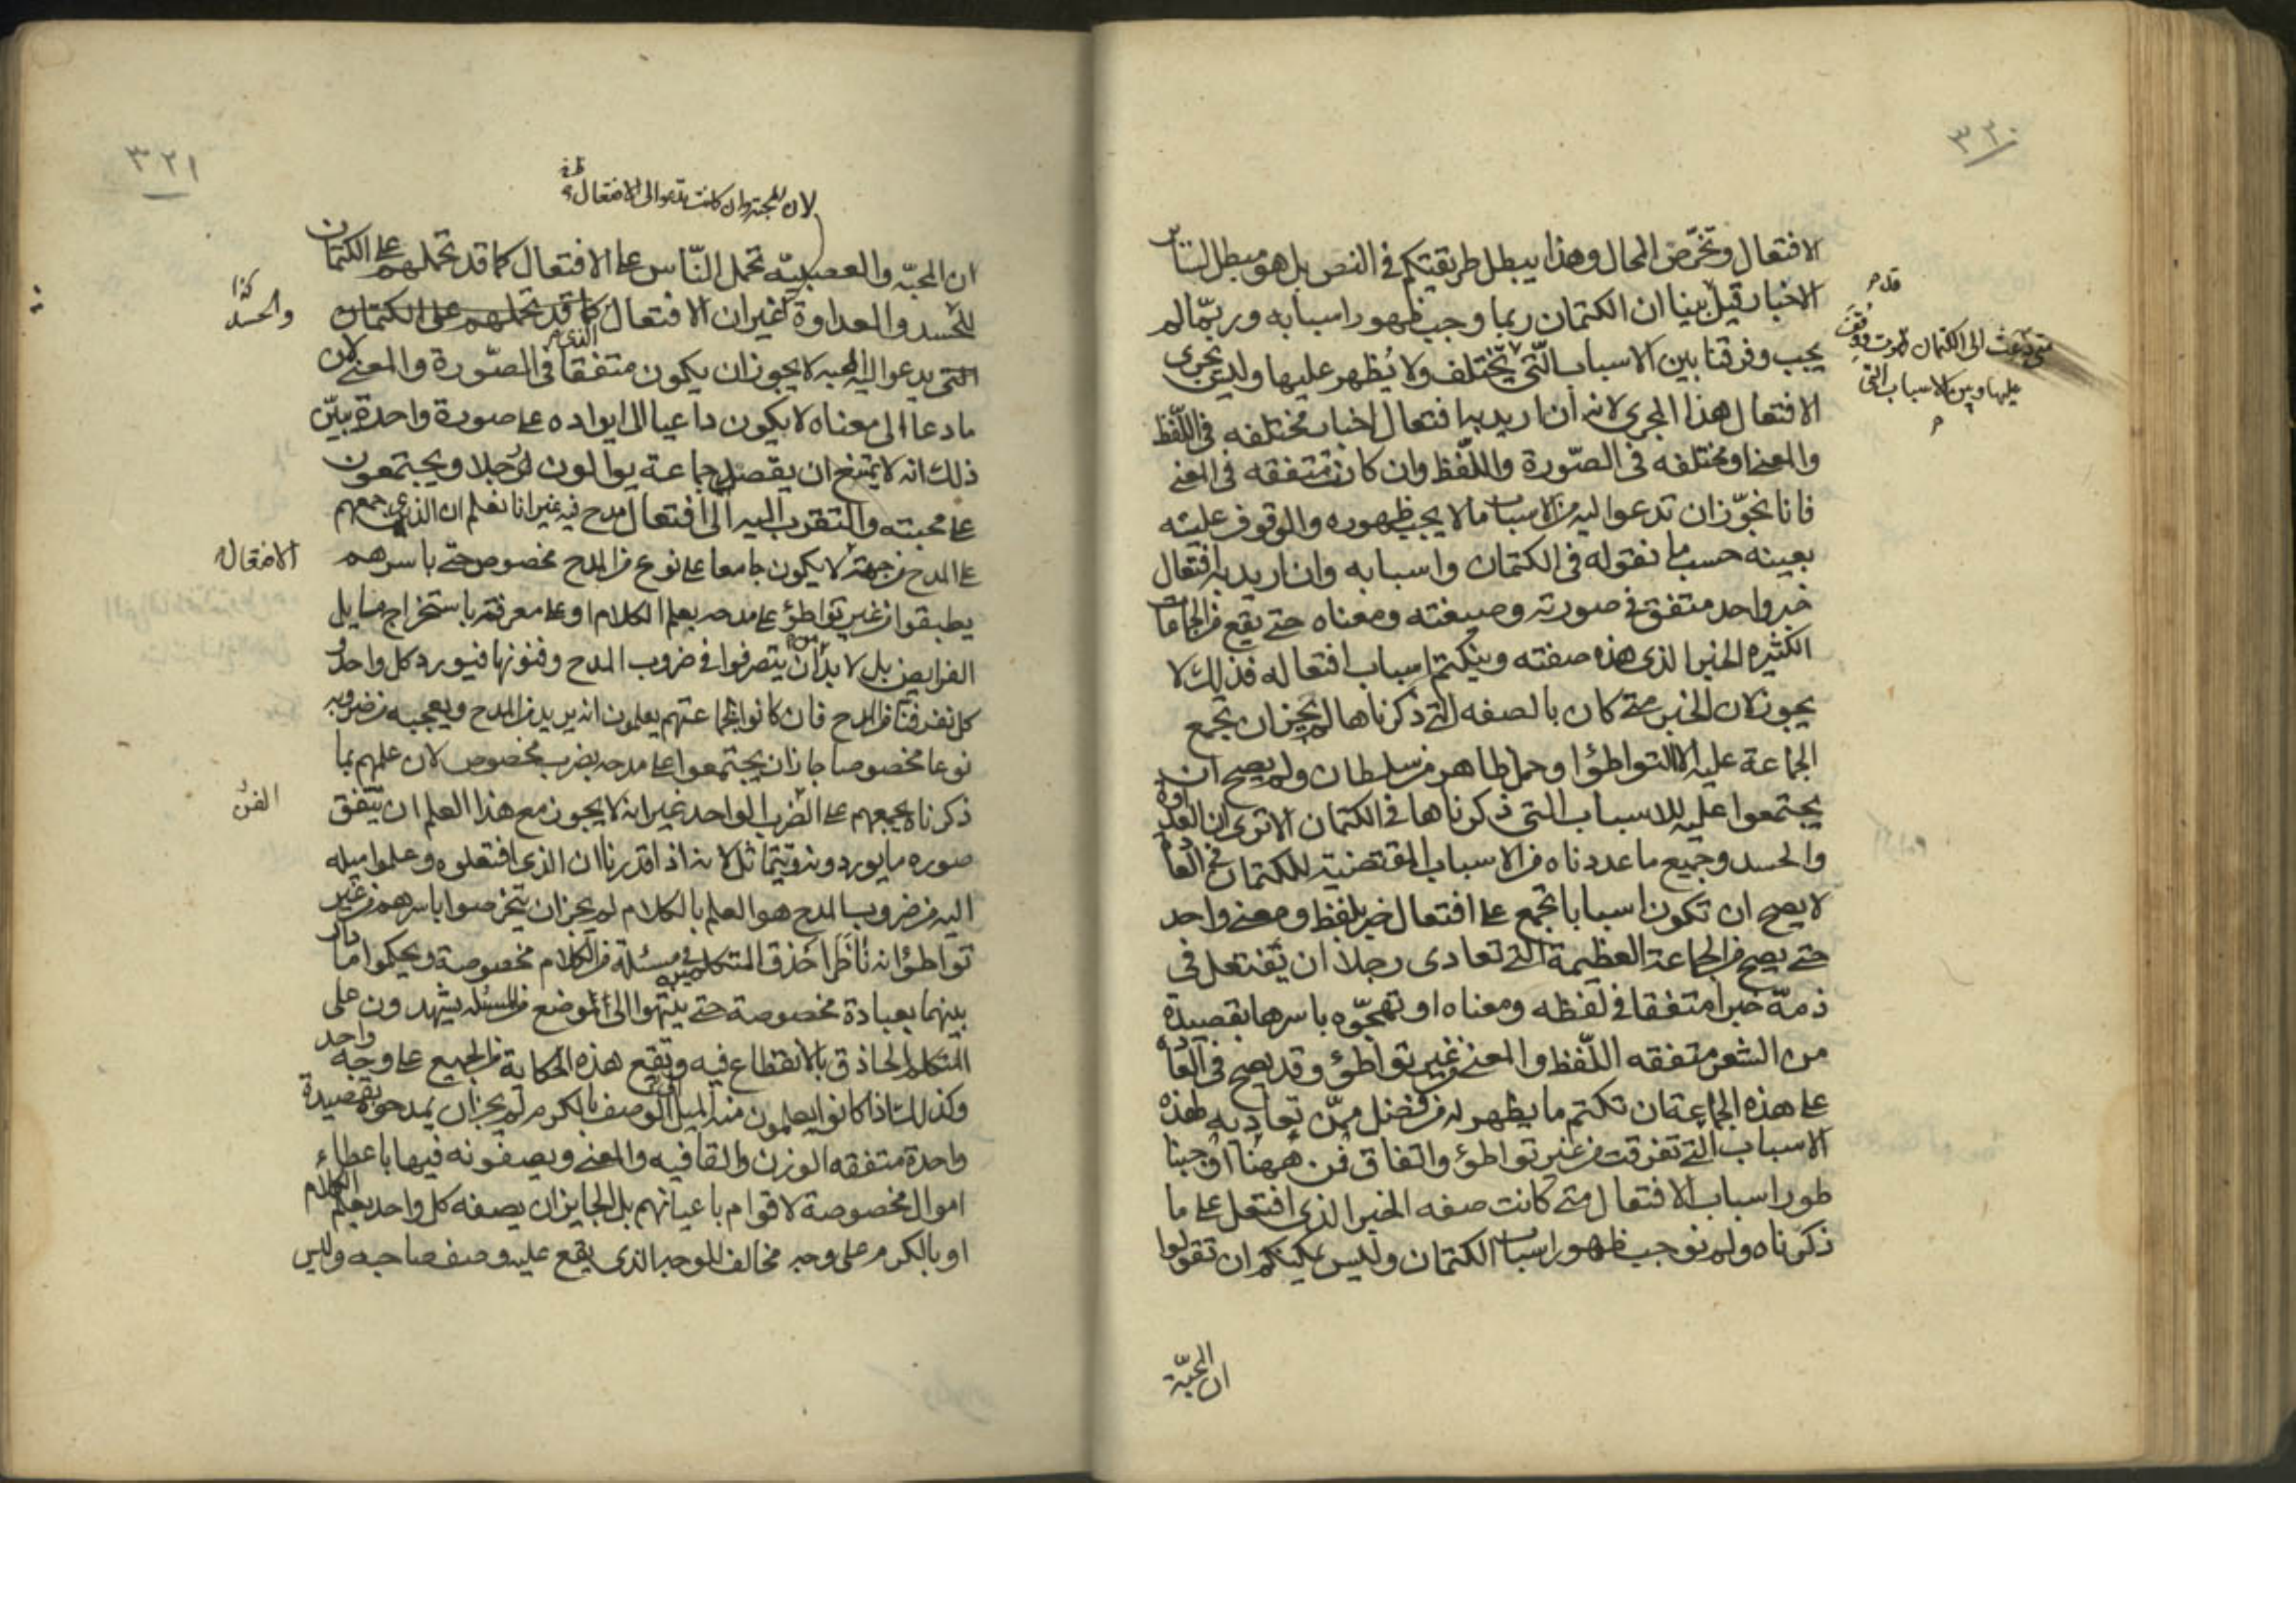 ٣٢٠
الافتعال وتخرّص المحال وهذا يبطل طريقتكم في النص بل هو مبطل لساير
الاخبار قيل بينا ان الكتمان ربما وجب ظهور اسبابه وربّما لم
يجب وفرقنا بين الاسباب الّتي تختلف ولا يُظهر عليها وليس يجرى
الافتعال هذا المجرى لانه ان اريد به افتعال اخبار مختلفه في اللّفظ
والمعنى او مختلفه في الصّورة واللّفظ وان كانت متفقه في المعنى
فانا نجوّز ان تدعوا اليه من الاسباب ما لا يجب ظهوره والوقوف عليه
بعينه حسب ما نقوله في الكتمان واسبابه وان اريد به افتعال
خبر واحد متفق في صورته وصيغته ومعناه حتى يقع من الجماعات
الكثيره الخبر الذى هذه صفته وينكتم اسباب افتعاله فذلك لا
يجوز لان الخبر متى كان بالصفه التي ذكرناها لم يجز ان تجمع
الجماعة عليه الا التواطؤ او حمل ظاهر من سلطان ولم يصح ان
يجتمعوا عليه للاسباب التي ذكرناها في الكتمان الا ترى ان العداوة
والحسد وجميع ما عددناه من الاسباب المقتضية للكتمان في العادة
لا يصح ان تكون اسبابا تجمع على افتعال خبر بلفظ ومعنى واحد
حتى يصح من الجماعة العظيمة التي تعادى رجلا ان تفتعل في
ذمّه خبرا متفقا في لفظه ومعناه او تهجوّه باسرها بقصيدة
من الشعر متفقه اللّفظ والمعنى من غير تواطؤ وقد يصح في العادة
على هذه الجماعة ان تكتم ما يظهر له من فضل ممّن تعاديه لهذه
الاسباب التي تفرقت من غير تواطؤ واتفاق فمن ههنا اوجبنا
ظهور اسباب الافتعال متى كانت صفه الخبر الذى افتعل على ما
ذكرناه ولم نوجب ظهور اسباب الكتمان وليس يمكنكم ان تقولوا
ان المحبّة
قد م
متى دعت الى الكتمان ظهرت ووقف
عليها وبين الاسباب التي
م
٣٢١
لان المحبة وان كانت تدعوا الى الافتعال
ان المحبّه والعصبيّه تحمل النّاس على الافتعال كما قد تحملهم على الكتمان
للحسد والعداوة غير ان الافتعال كما قد تحملهم على الكتمان
الذى
التي يدعو اليه المحبه لا يجوز ان يكون متفقا في الصّورة والمعنى لان
ما دعا الى معناه لا يكون داعيا الى ايراده على صورة واحدة يبيّن
ذلك انه لا يمتنع ان يقصد جماعة يوالون رجلا ويجتمعون
على محبته والتقرب اليه الى افتعال مدح فيه غير انا نعلم ان الذى جمعهم
على المدح من جهته لا يكون جامعا على نوع من المدح مخصوص حتى باسرهم
يطبقوا من غير تواطؤ على مدحه بعلم الكلام او على معرفته باستخراج مسايل
الفرايض بل لا بد من ان يتصرفوا في ضروب المدح وفنونها فيورد كل واحد و
كل نفر فنا من المدح فان كانوا بجماعتهم يعلمون انه يريد من المدح ويعجبه من ضروبه
نوعا مخصوصا جاز ان يجتمعوا على مدحه بضرب مخصوص لان علمهم بما
ذكرناه يجمعهم على الضرب الواحد غير انه لا يجوز مع هذا العلم ان يتّفق
صوره ما يوردونه ويتماثل لانه اذا قدرنا ان الذى افتعلوه وعلموا ميله
اليه من ضروب المدح هو العلم بالكلام لم يجز ان يتخرصوا باسرهم من غير
تواطؤ انه ناظر احذق المتكلمين في مسئلة من الكلام مخصوصة ويحكوا ما دار
بينهما بعبارة مخصوصة حتى ينتهوا الى الموضع من المسئله يشهدون على
المتكلم الحاذق بالانقطاع فيه وتقع هذه الحكاية من الجميع على وجه واحد
وكذلك اذا كانوا يعلمون منه الميل الى الوصف بالكرم لم يجز ان يمدحوه بقصيدة
واحدة متفقه الوزن والقافيه والمعنى ويصفونه فيها باعطاء
اموال مخصوصة لاقوام باعيانهم بل الجايز ان يصفه كل واحد بعلم الكلام
او بالكرم على وجه مخالف للوجه الذى يقع عليه وصف صاحبه وليس
كذا
والحسد
الافتعال
الفن